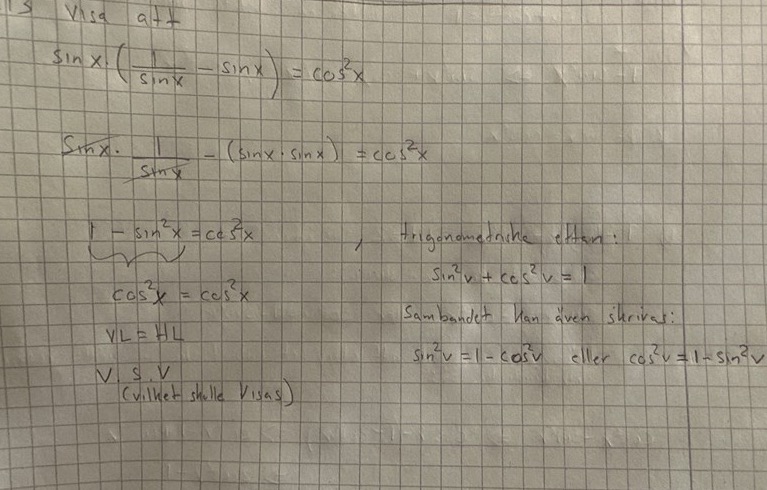 Visa att
sin x · (1/sin x − sin x) = cos²x
sin x · 1/sin x − (sin x · sin x) = cos²x
1 − sin²x = cos²x , trigonometriska ettan:
sin²v + cos²v = 1
cos²x = cos²x
Sambandet kan även skrivas:
VL = HL
sin²v = 1 − cos²v eller cos²v = 1 − sin²v
V. S. V
(vilket skulle visas)